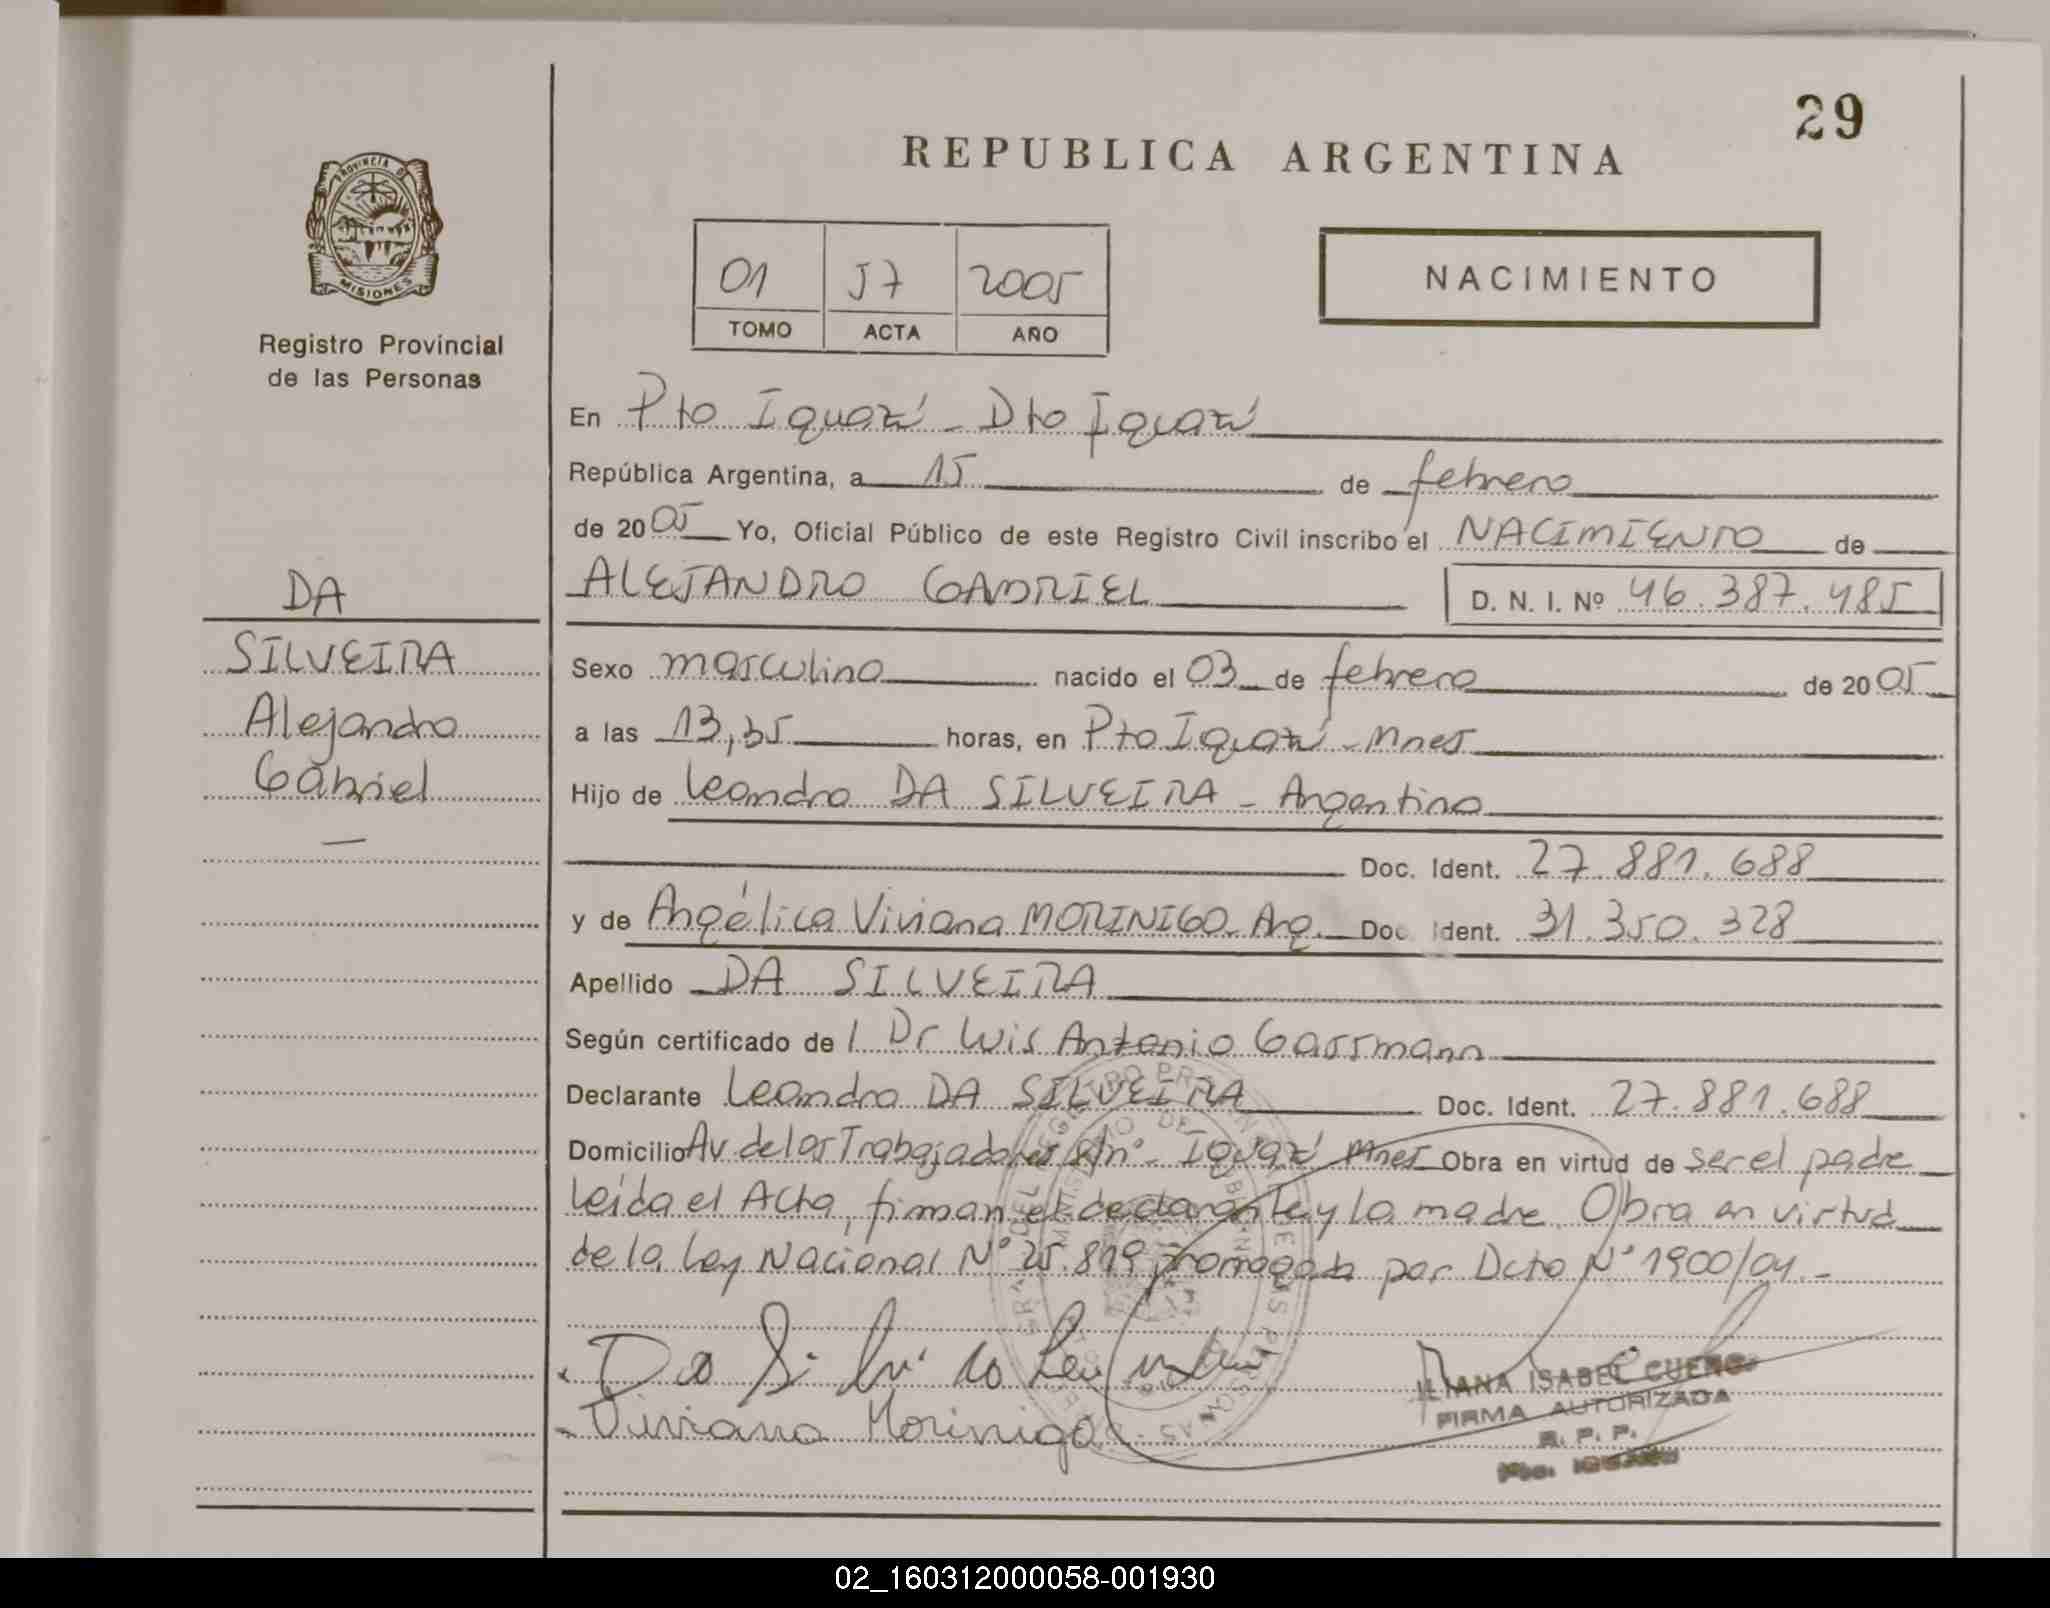 29
REPUBLICA ARGENTINA
PROVINCIA DE
MISIONES
Registro Provincial
de las Personas
01 57 2005
TOMO ACTA AÑO
NACIMIENTO
En Pto Iguazú - Dto Iguazú
República Argentina, a 15 de febrero
de 2005 Yo, Oficial Público de este Registro Civil inscribo el NACIMIENTO de
ALEJANDRO GABRIEL D. N. I. Nº 46.387.485
DA
SILVEIRA
Alejandro
Gabriel
Sexo masculino nacido el 03 de febrero de 2005
a las 13,35 horas, en Pto Iguazú - Mnes
Hijo de Leandro DA SILVEIRA - Argentino
Doc. Ident. 27.881.688
y de Angélica Viviana MORINIGO - Arg. Doc. Ident. 31.350.328
Apellido DA SILVEIRA
Según certificado de l Dr Luis Antonio Gassmann
Declarante Leandro DA SILVEIRA Doc. Ident. 27.881.688
Domicilio Av de los Trabajadores s/nº - Iguazú Mnes Obra en virtud de ser el padre
Leída el Acta, firman el declarante y la madre. Obra en virtud
de la Ley Nacional Nº 25.819 prorrogada por Dcto Nº 1900/04.-
Viviana Morinigo
ISABEL
FIRMA AUTORIZADA
R. P. P.
Pto. IGUAZU
02_160312000058-001930